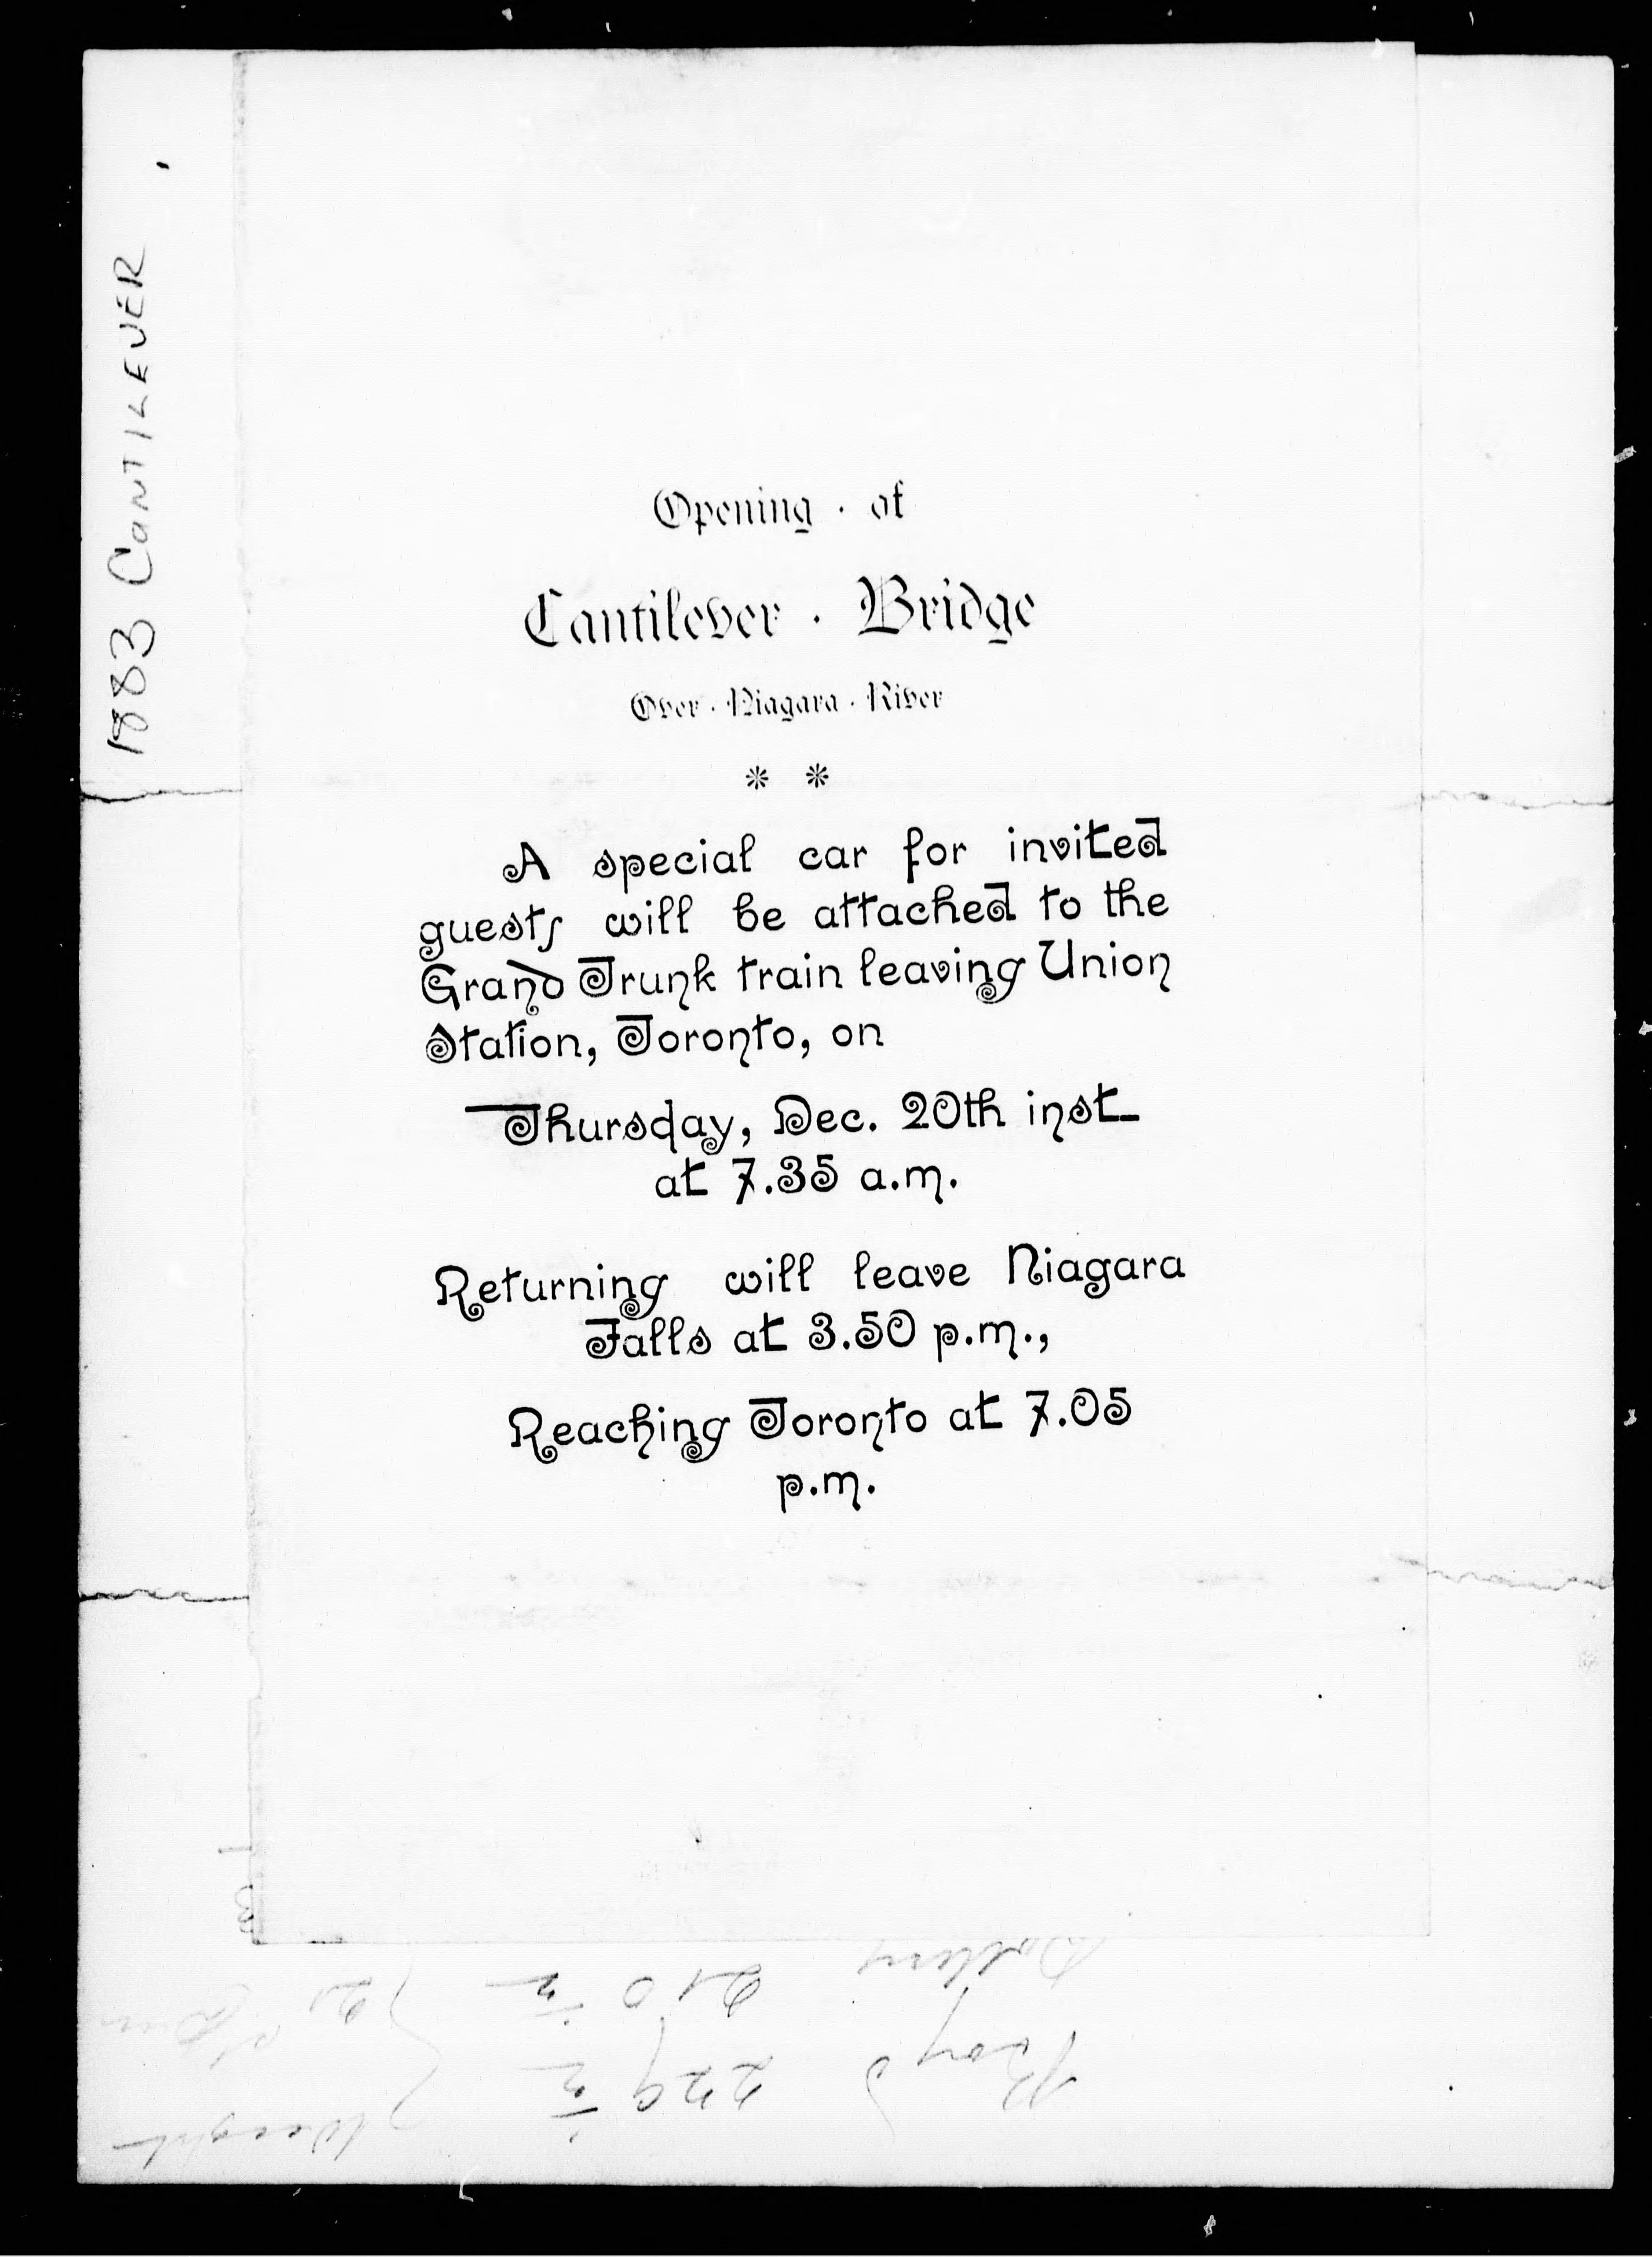 1883 CANTILEVER
Opening · of
Cantilever · Bridge
Over · Niagara · River
* *
A special car for invited
guests will be attached to the
Grand Trunk train leaving Union
Station, Toronto, on
Thursday, Dec. 20th inst
at 7.35 a.m.
Returning will leave Niagara
Falls at 3.50 p.m.,
Reaching Toronto at 7.05
p.m.
210 1/2
229 1/2
Boyd
Weight